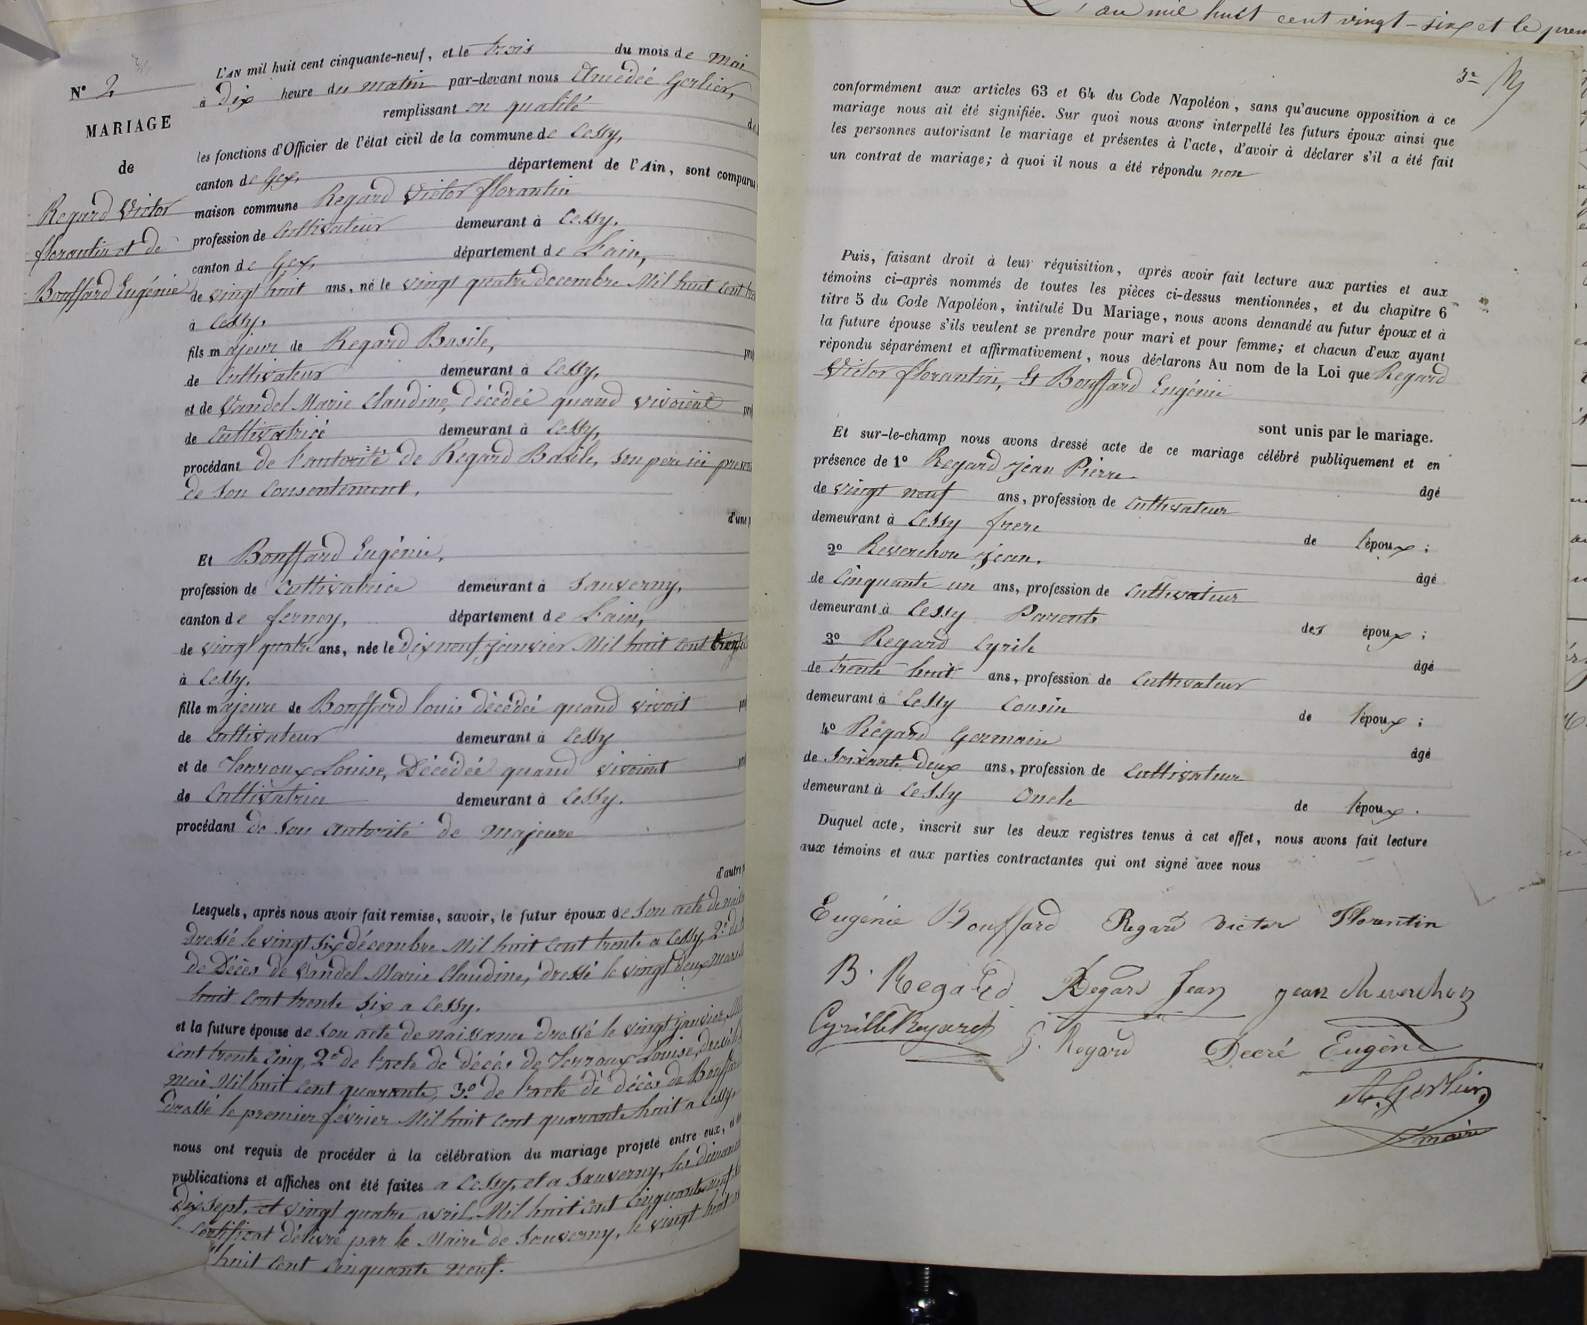 L'an mil huit cent vingt-six et le prem
N° 2
MARIAGE
de
Regard Victor
florentin et de
Bouffard Eugénie
L'AN mil huit cent cinquante-neuf, et le trois du mois de mai
à dix heure du matin par-devant nous Amédée Gerlier,
remplissant en qualité de
les fonctions d'Officier de l'état civil de la commune de Cessy,
canton de Gex, département de l'Ain, sont comparus
maison commune Regard Victor florantin
profession de Cultivateur demeurant à Cessy.
canton de Gex, département de L'ain,
de vingt huit ans, né le vingt quatre decembre Mil huit cent tre
à Cessy.
fils majeur de Regard Basile,
de Cultivateur demeurant à Cessy,
et de Vandel Marie Claudine, décédée quand vivoient
de Cultivatrice demeurant à Cessy,
procédant de l'autorité de Regard Basile, son père ici présent
de son Consentement.
d'une p
Et Bouffard Eugénie,
profession de Cultivatrice demeurant à Sauverny,
canton de ferney, département de L'ain,
de vingt quatre ans, née le Dix neuf janvier Mil huit cent trente
à Cessy.
fille majeure de Bouffard Louis décédé quand vivoit
de Cultivateur demeurant à Cessy
et de Louise, Décédée quand vivoient
de Cultivatrice demeurant à Cessy.
procédant de son autorité de majeure
d'autre p
Lesquels, après nous avoir fait remise, savoir, le futur époux de son acte de nais
Dressé le vingt six décembre Mil huit cent trente a Cessy, 2° de
de Décès de Vandel Marie Claudine, dressé le vingt deux mars
huit cent trente six a Cessy.
et la future épouse de son acte de naissance dressé le vingt janvier Mil
Cent trente cinq, 2° de l'acte de décès de Louise, dressé le
mai Mil huit cent quarante, 3° de l'acte de décès de Bouffard
dressé le premier février Mil huit cent quarante huit a Cessy,
nous ont requis de procéder à la célébration du mariage projeté entre eux, et
publications et affiches ont été faites a Cessy, et a Sauverny, les dimanches
Dix sept, et vingt quatre avril, Mil huit cent cinquante neuf
Certificat délivré par le Maire de Sauverny, le vingt huit
huit cent cinquante neuf.
3e
conformément aux articles 63 et 64 du Code Napoléon, sans qu'aucune opposition à ce
mariage nous ait été signifiée. Sur quoi nous avons interpellé les futurs époux ainsi que
les personnes autorisant le mariage et présentes à l'acte, d'avoir à déclarer s'il a été fait
un contrat de mariage; à quoi il nous a été répondu non
Puis, faisant droit à leur réquisition, après avoir fait lecture aux parties et aux
témoins ci-après nommés de toutes les pièces ci-dessus mentionnées, et du chapitre 6
titre 5 du Code Napoléon, intitulé Du Mariage, nous avons demandé au futur époux et à
la future épouse s'ils veulent se prendre pour mari et pour femme; et chacun d'eux ayant
répondu séparément et affirmativement, nous déclarons Au nom de la Loi que Regard
Victor florantin, Et Bouffard Eugénie
sont unis par le mariage.
Et sur-le-champ nous avons dressé acte de ce mariage célébré publiquement et en
présence de 1° Regard Jean Pierre âgé
de vingt neuf ans, profession de Cultivateur
demeurant à Cessy frere de l'époux;
2° Reverchon Jean, âgé
de Cinquante un ans, profession de Cultivateur
demeurant à Cessy Parents des époux;
3° Regard Cyrile âgé
de trente huit ans, profession de Cultivateur
demeurant à Cessy Cousin de l'époux;
4° Regard Germain âgé
de Soixante deux ans, profession de Cultivateur
demeurant à Cessy Oncle de l'époux.
Duquel acte, inscrit sur les deux registres tenus à cet effet, nous avons fait lecture
aux témoins et aux parties contractantes qui ont signé avec nous
Eugénie Bouffard Regard Victor Florentin
B. Regard Regard Jean Jean Reverchon
Cyrille Regard G. Regard Decré Eugène
A. Gerlier
maire